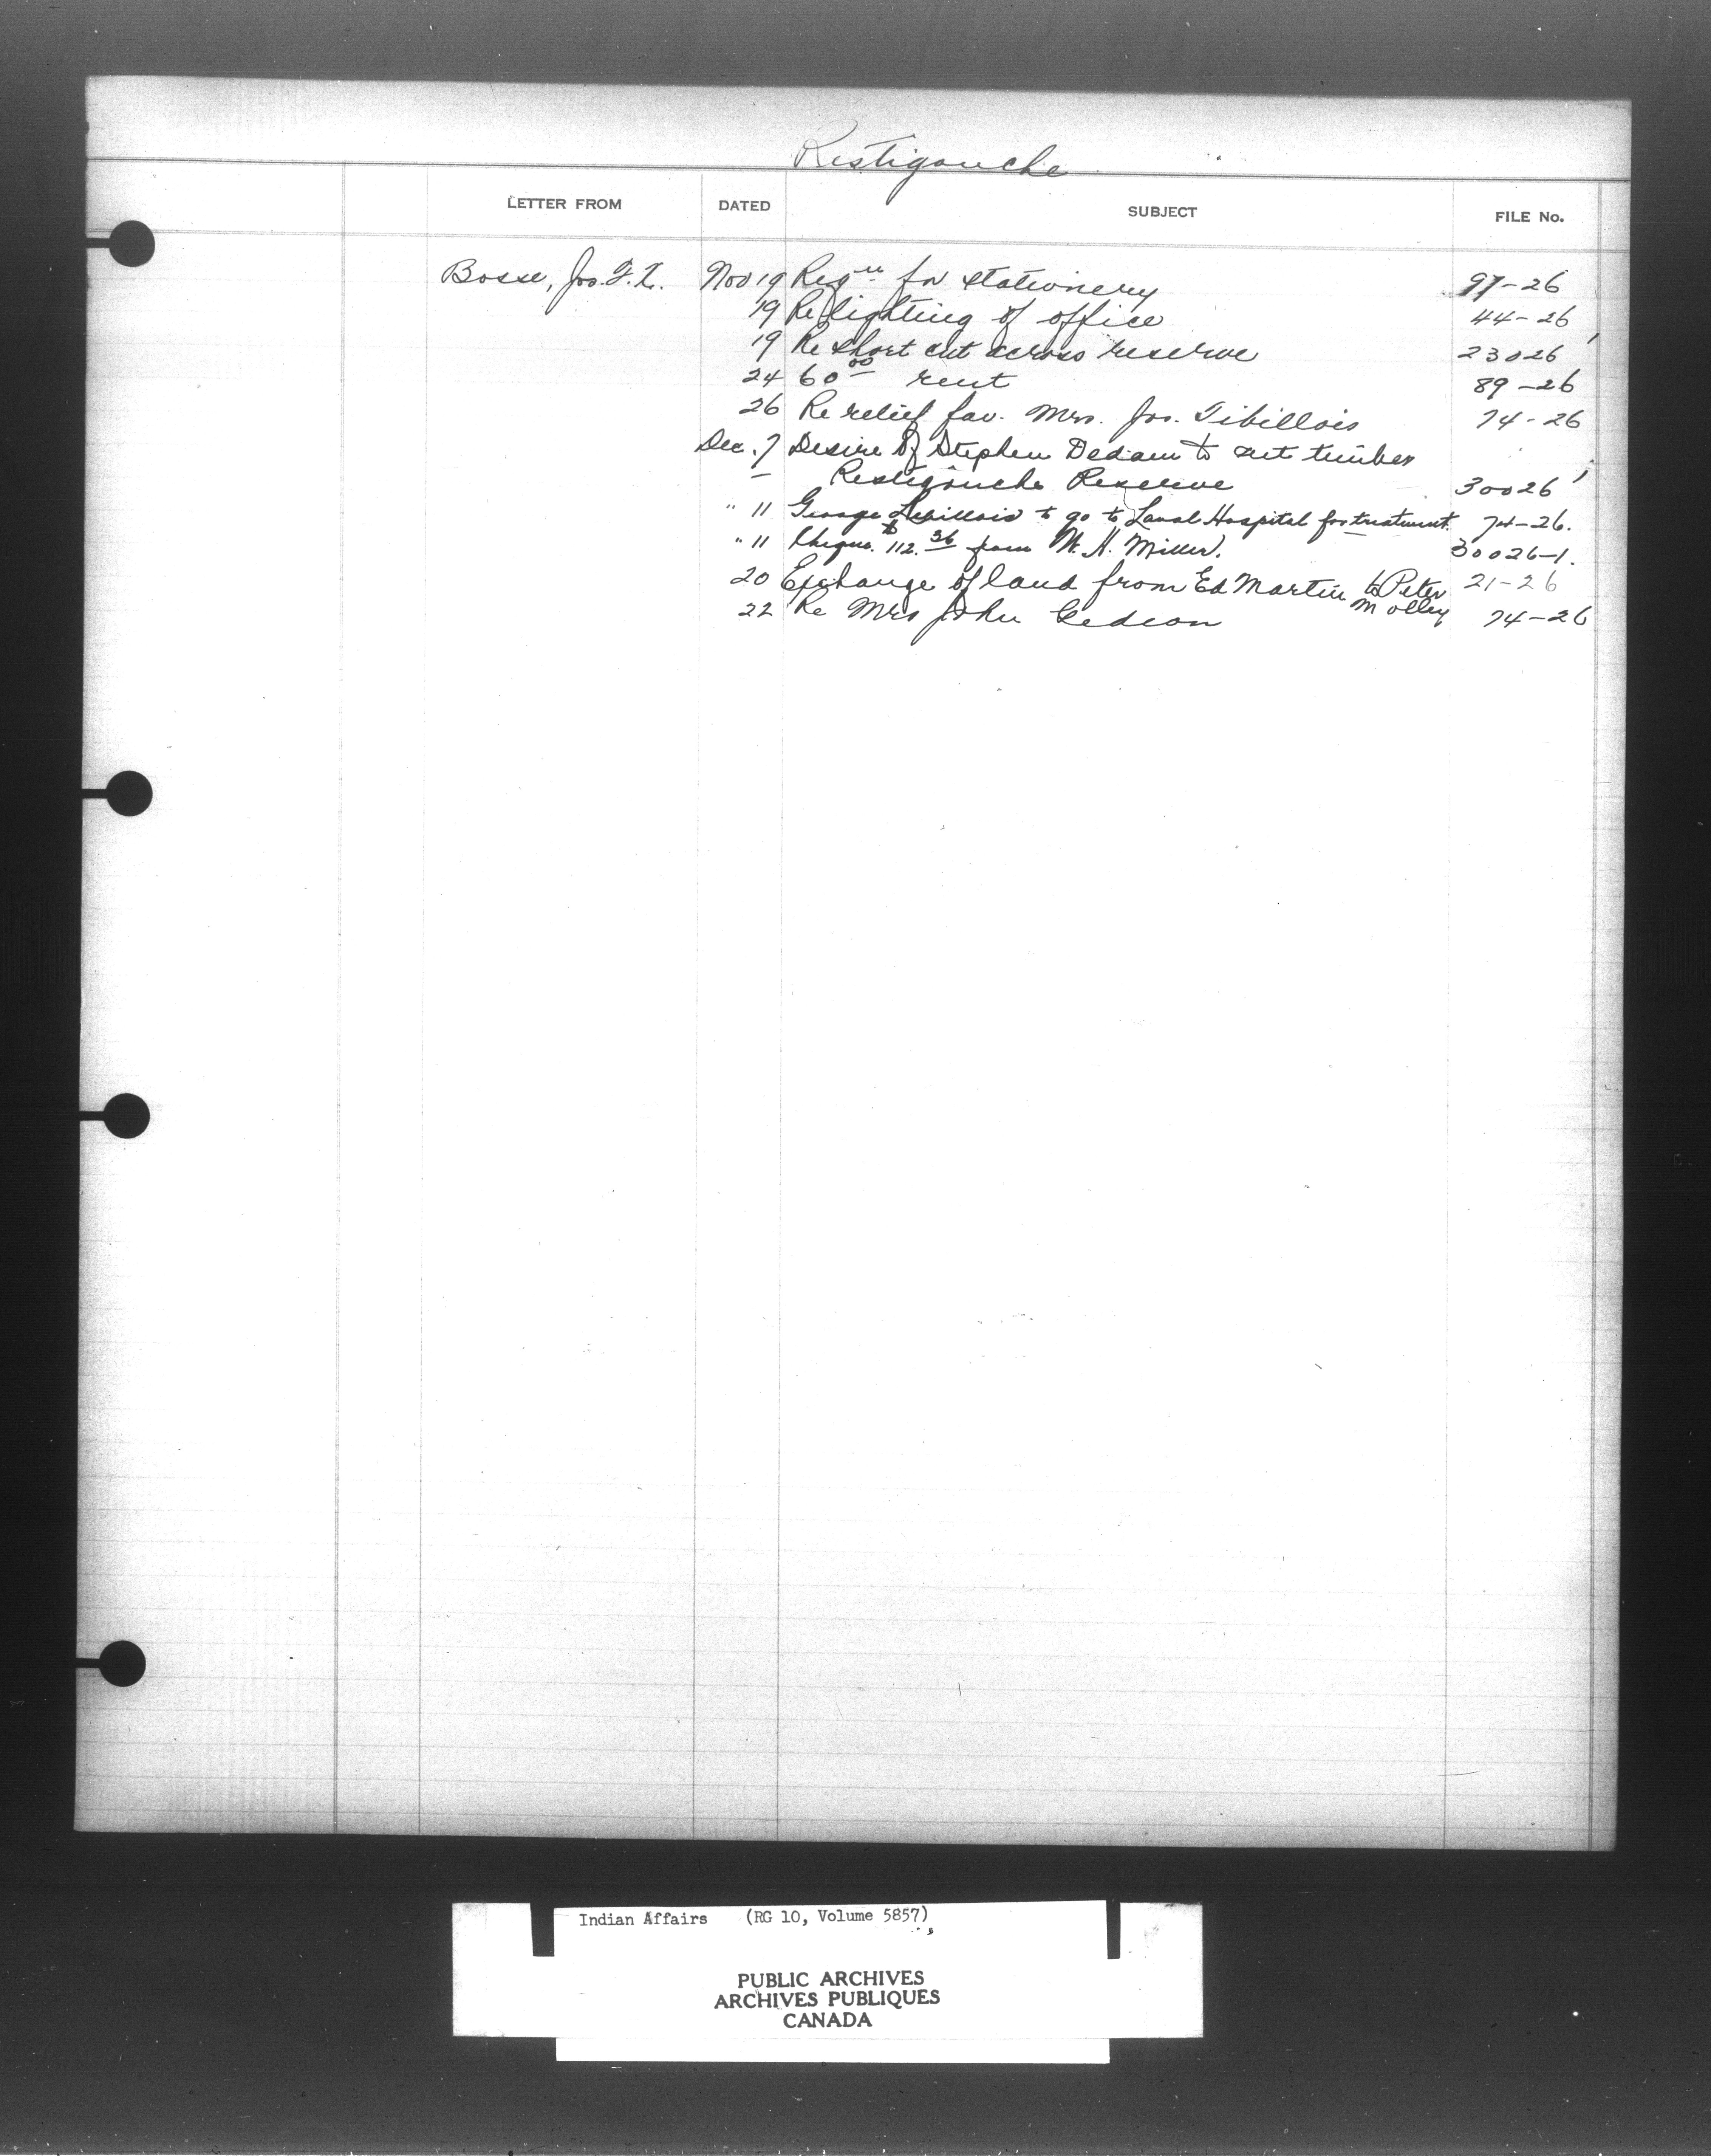 Restigouche
LETTER FROM DATED SUBJECT FILE No.
Bosse, Jos. F. X. Nov 19 Reqn for stationery 97-26
19 Re lighting of office 44-26
19 Re short cut across reserve 23026
24 60 00 rent 89-26
26 Re relief fav. Mrs. Jos. 74-26
Dec. 7 Desire of Stephen Dedam to cut timber
Restigouche Reserve 30026
" 11 George to go to Laval Hospital for treatment. 74-26.
" 11 Cheque $112.36 from W. H. Miller. 30026-1.
20 Exchange of land from Ed Martin to Peter 21-26
Molley
22 Re Mrs John Gedeon 74-26
Indian Affairs (RG 10, Volume 5857)
PUBLIC ARCHIVES
ARCHIVES PUBLIQUES
CANADA